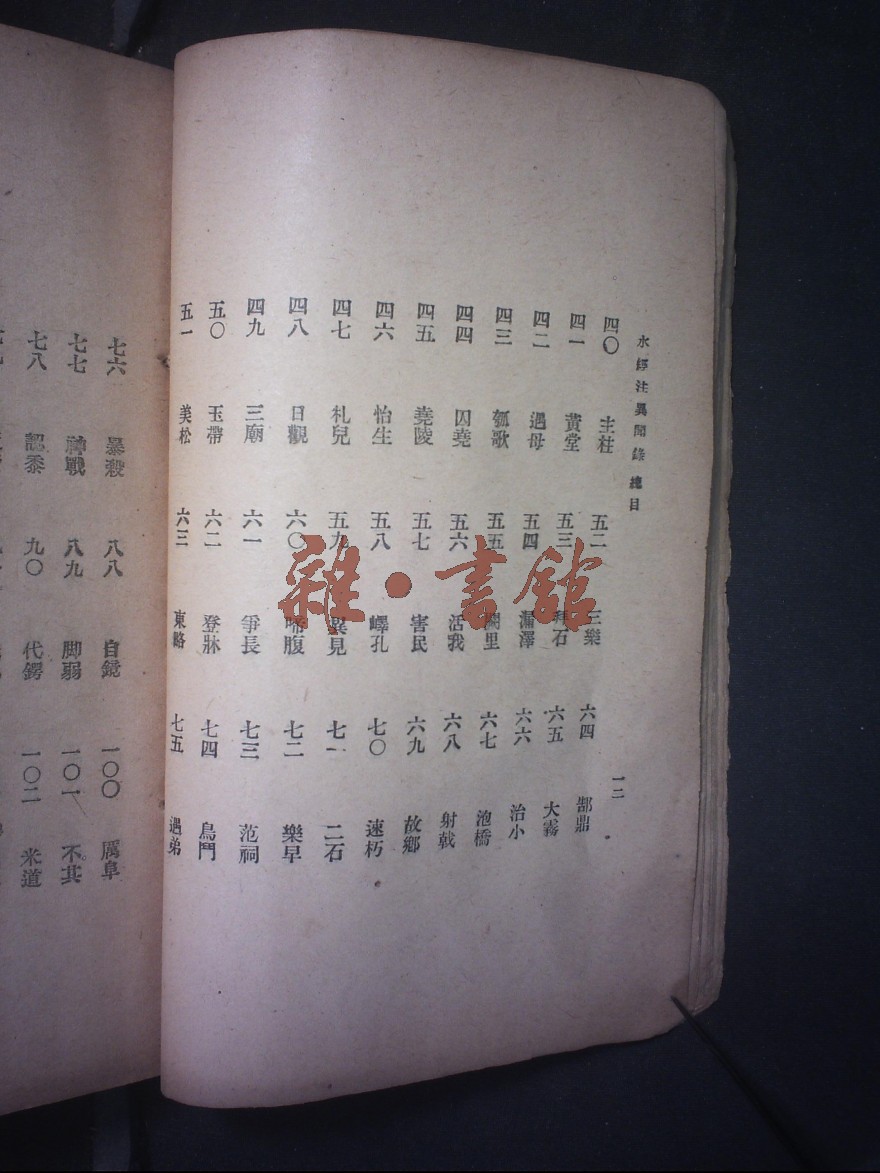 水經注異聞錄 總目
一二
四〇 主柱 五二 三樂 六四 郜鼎
四一 黃堂 五三 拜石 六五 大霧
四二 過母 五四 漏澤 六六 治小
四三 瓠歌 五五 闕里 六七 泡橋
四四 囚堯 五六 活我 六八 射戟
四五 堯陵 五七 害民 六九 故鄉
四六 怡生 五八 嶧孔 七〇 速朽
四七 札兒 五九 異見 七一 二石
四八 日觀 六〇 啼腹 七二 樂早
四九 三廟 六一 爭長 七三 范祠
五〇 玉帶 六二 登牀 七四 鳥鬥
五一 美松 六三 東略 七五 遇弟
七六 暴殺 八八 自鏡 一〇〇 厲阜
七七 神戰 八九 脚弱 一〇一 不其
七八 九〇 代鍔 一〇二 米道
雜·書館